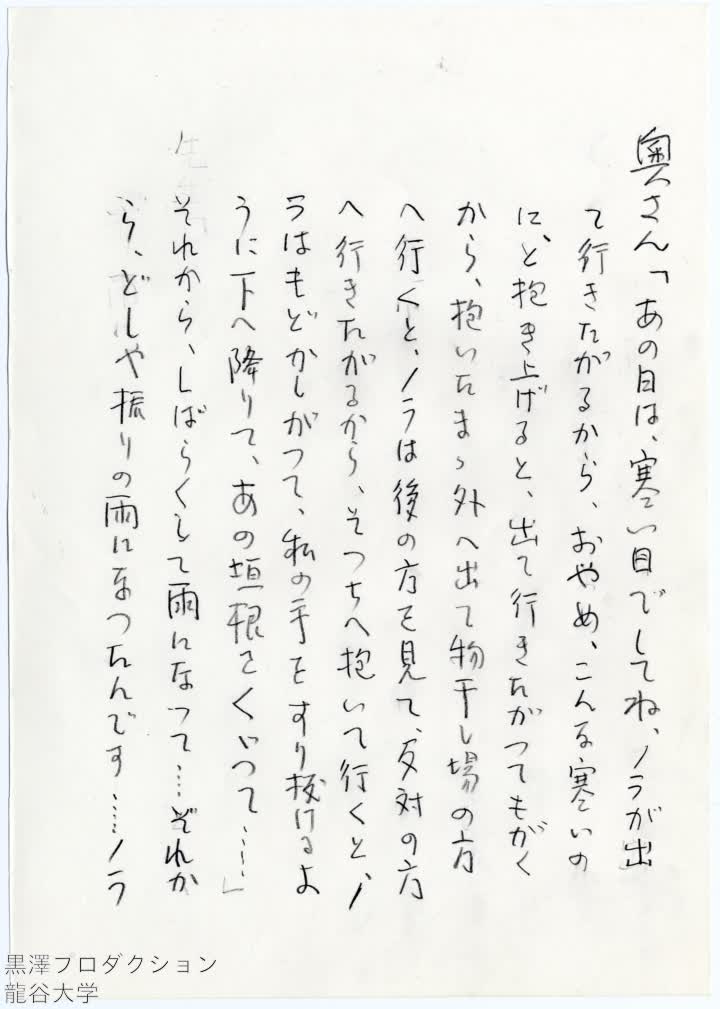 奥さん「あの日は、寒い日でしてね、ノラが出
て行きたがるから、おやめ、こんな寒いの
に、と抱き上げると、出て行きたがつてもがく
から、抱いたまゝ外へ出て物干し場の方
へ行くと、ノラは後の方を見て、反対の方
へ行きたがるから、そつちへ抱いて行くと、ノ
ラはもどかしがつて、私の手をすり抜けるよ
うに下へ降りて、あの垣根をくゞつて……」
それから、しばらくして雨になつて……それか
ら、どしや振りの雨になつたんです……ノラ
黒澤プロダクション
龍谷大学